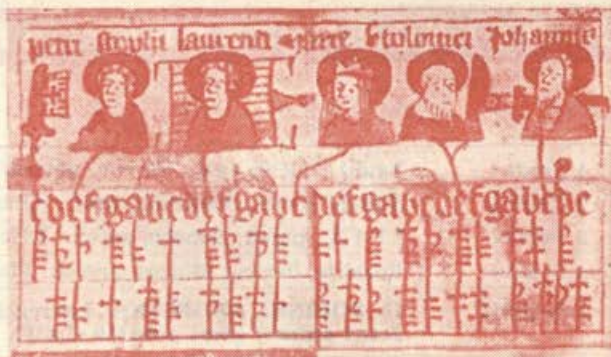 petri laurencii marie btolomei Johannis
cdefgabcdefgabcdefgabcdefgabcde